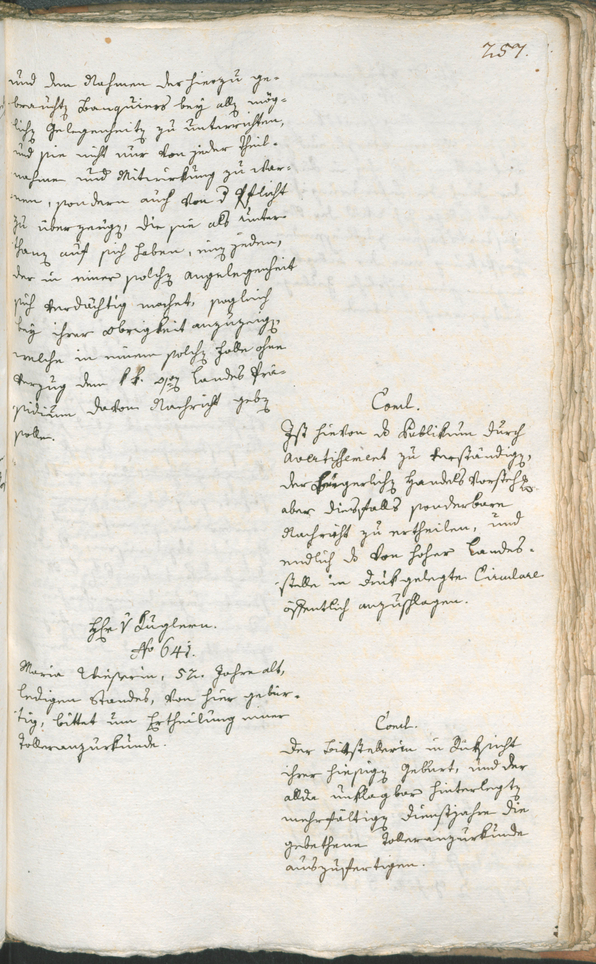 257.
und dem Nahmen der hierzu ge-
brauchten Banquiers bey allen mög-
lichen Gelegenheiten zu unterrichten,
und sie nicht nur von jeder Theil-
nahme und Mitwirkung zu war-
nen, sondern auch von der Pflicht
zu überzeugen, die sie als Unter-
thanen auf sich haben, einen jeden,
der in einer solchen Angelegenheit
sich verdächtig machet, sogleich
bey ihrer Obrigkeit anzuzeigen,
welche in einem solchen Falle ohne
Verzug dem k. k. Landes Prä-
sidium davon Nachricht geben
solle.
Concl.
Ist hievon das Publikum durch
Avertissement zu verständigen,
der bürgerlichen Handels Vorstehung
aber diesfalls sonderbare
Nachricht zu ertheilen, und
endlich das von hoher Landes-
stelle in Druk gelegte Circulare
öffentlich anzuschlagen.
Hr. v Kuglern.
No 641.
Maria, 52 Jahre alt,
ledigen Standes, von hier gebür-
tig, bittet um Ertheilung einer
Tolleranzurkunde.
Concl.
Der Bittstellerin in Rüksicht
ihrer hiesigen Geburt, und der
allda unklagbar hinterlegten
mehrfältigen Dienstjahre die
gebethene Tolleranzurkunde
auszufertigen.